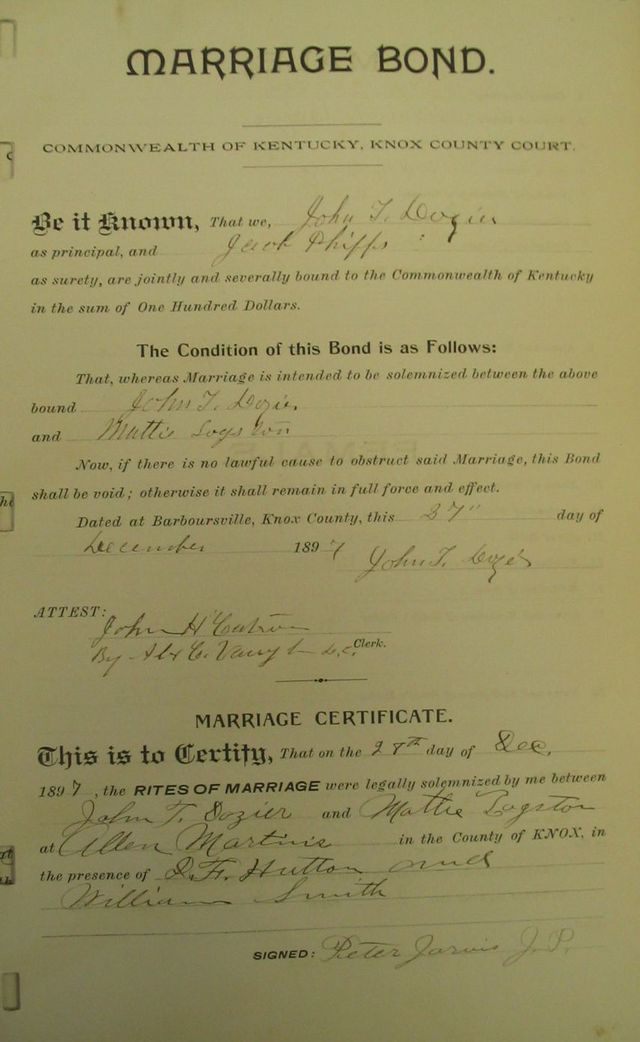 MARRIAGE BOND.
COMMONWEALTH OF KENTUCKY, KNOX COUNTY COURT.
Be it Known, That we, John T. Dozier
as principal, and Jacob Phipps
as surety, are jointly and severally bound to the Commonwealth of Kentucky
in the sum of One Hundred Dollars.
The Condition of this Bond is as Follows:
That, whereas Marriage is intended to be solemnized between the above
bound John T. Dozier
and Mattie Logston
Now, if there is no lawful cause to obstruct said Marriage, this Bond
shall be void; otherwise it shall remain in full force and effect.
Dated at Barboursville, Knox County, this 27" day of
December 1897 John T. Dozier
ATTEST:
John H Catron
By C. D.C. Clerk.
MARRIAGE CERTIFICATE.
This is to Certify, That on the 28th day of Dec.
1897, the RITES OF MARRIAGE were legally solemnized by me between
John T. Dozier and Mattie Logston
at Allen Martins in the County of KNOX, in
the presence of D. F. Hutton and
William Smith
SIGNED: Peter Jarvis J.P.